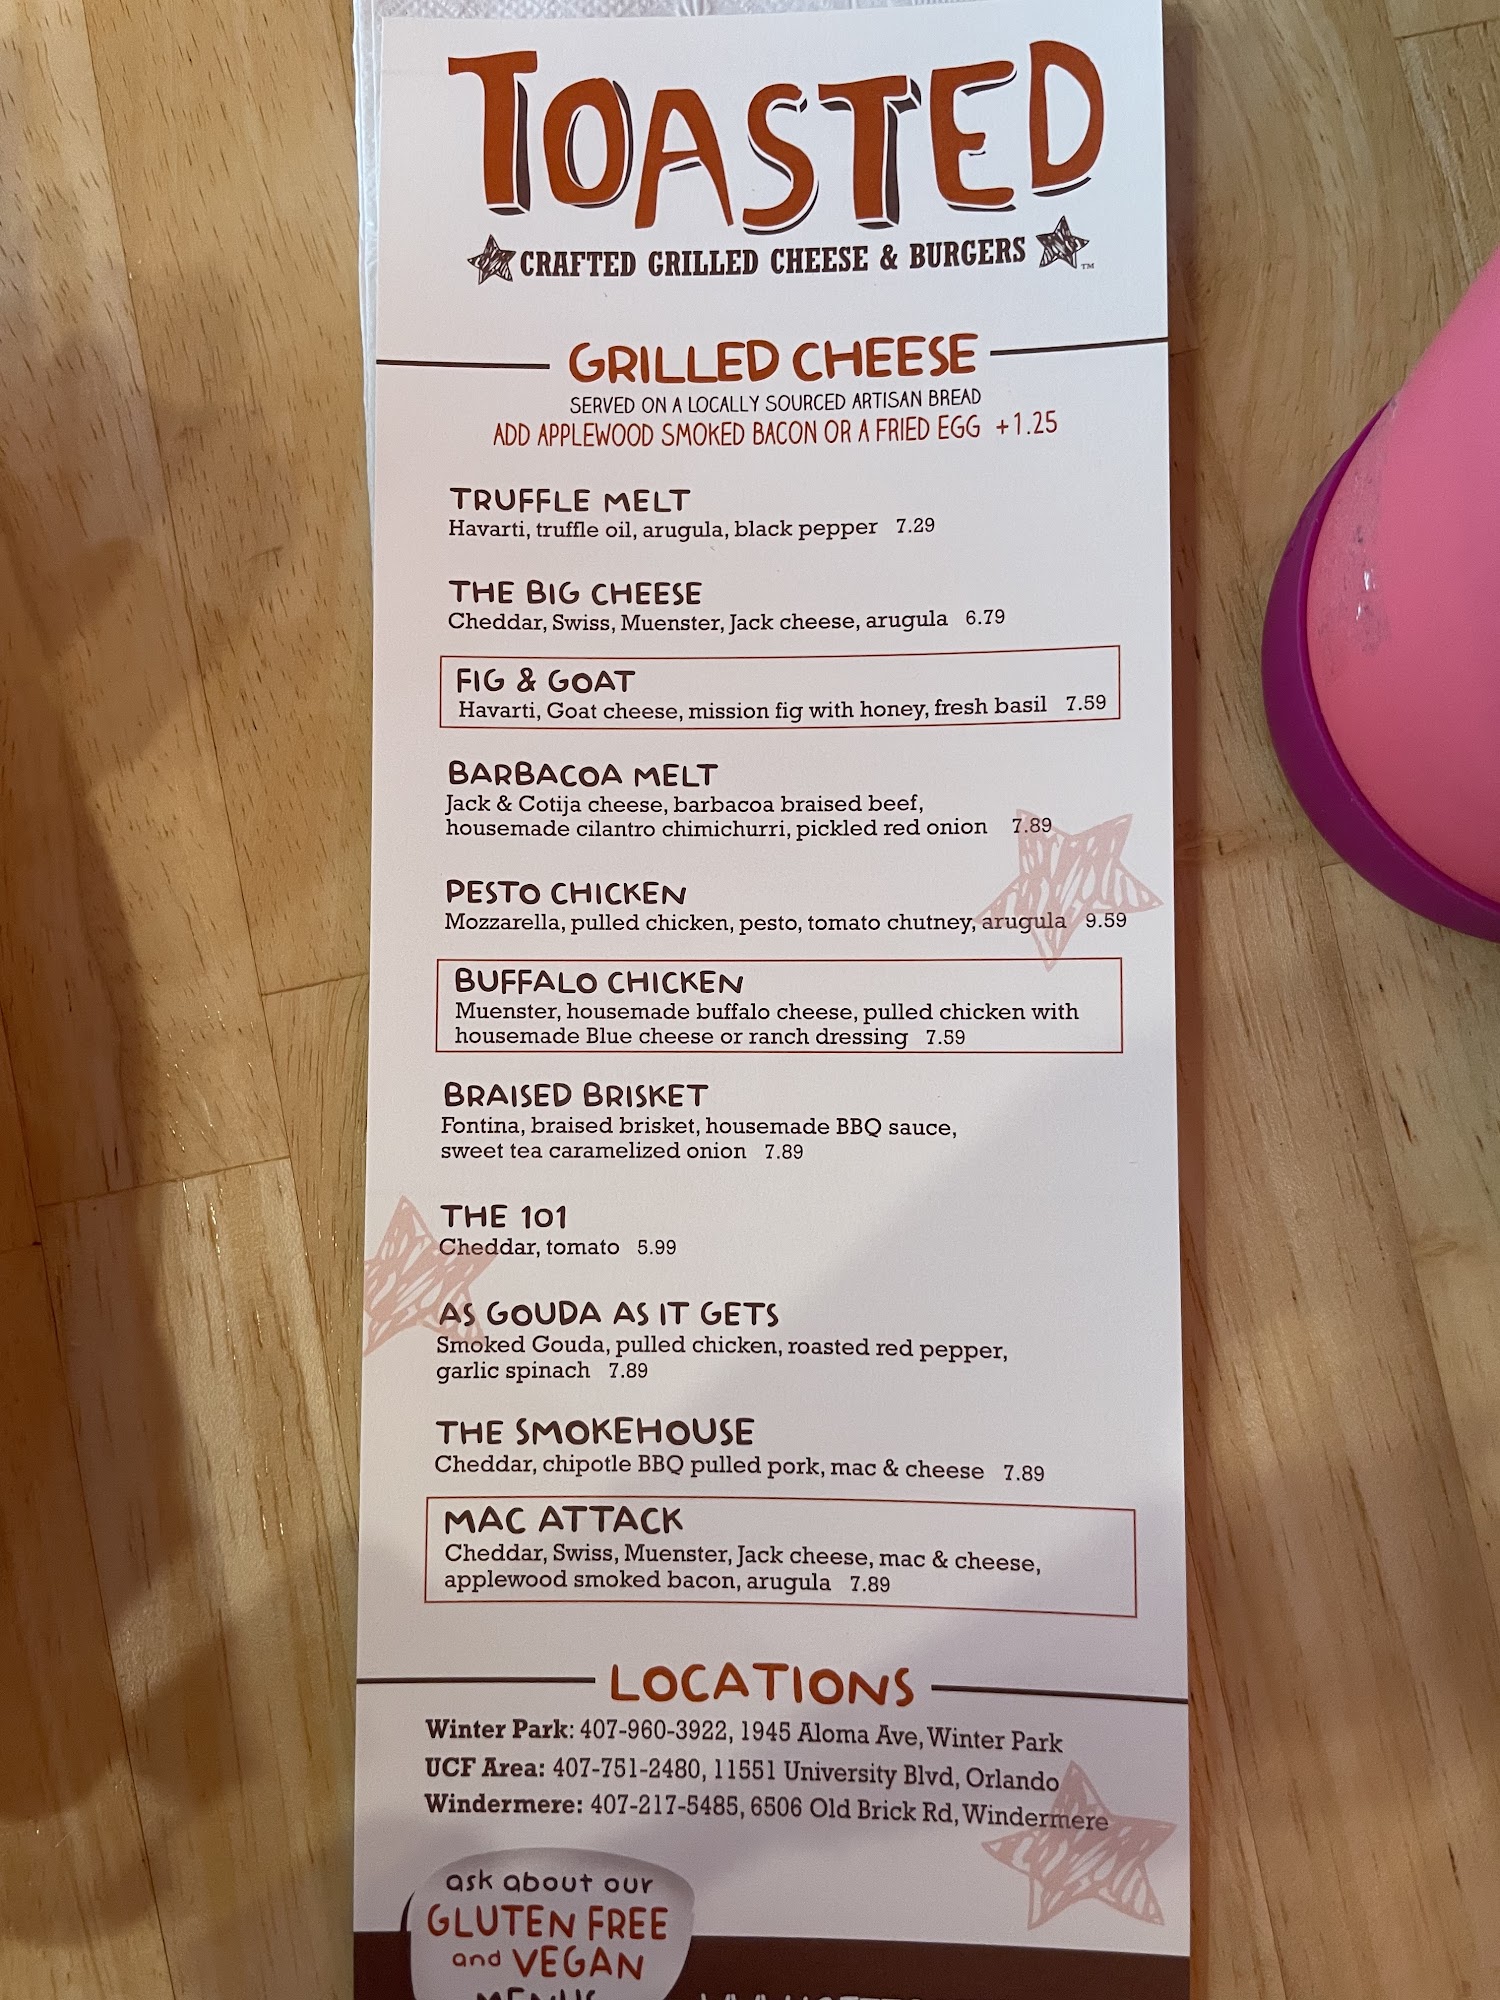 TOASTED
CRAFTED GRILLED CHEESE & BURGERS TM
GRILLED CHEESE
SERVED ON A LOCALLY SOURCED ARTISAN BREAD
ADD APPLEWOOD SMOKED BACON OR A FRIED EGG +1.25
TRUFFLE MELT
Havarti, truffle oil, arugula, black pepper 7.29
THE BIG CHEESE
Cheddar, Swiss, Muenster, Jack cheese, arugula 6.79
FIG & GOAT
Havarti, Goat cheese, mission fig with honey, fresh basil 7.59
BARBACOA MELT
Jack & Cotija cheese, barbacoa braised beef,
housemade cilantro chimichurri, pickled red onion 7.89
PESTO CHICKEN
Mozzarella, pulled chicken, pesto, tomato chutney, arugula 9.59
BUFFALO CHICKEN
Muenster, housemade buffalo cheese, pulled chicken with
housemade Blue cheese or ranch dressing 7.59
BRAISED BRISKET
Fontina, braised brisket, housemade BBQ sauce,
sweet tea caramelized onion 7.89
THE 101
Cheddar, tomato 5.99
AS GOUDA AS IT GETS
Smoked Gouda, pulled chicken, roasted red pepper,
garlic spinach 7.89
THE SMOKEHOUSE
Cheddar, chipotle BBQ pulled pork, mac & cheese 7.89
MAC ATTACK
Cheddar, Swiss, Muenster, Jack cheese, mac & cheese,
applewood smoked bacon, arugula 7.89
LOCATIONS
Winter Park: 407-960-3922, 1945 Aloma Ave, Winter Park
UCF Area: 407-751-2480, 11551 University Blvd, Orlando
Windermere: 407-217-5485, 6506 Old Brick Rd, Windermere
ask about our
GLUTEN FREE
and VEGAN
MENUS